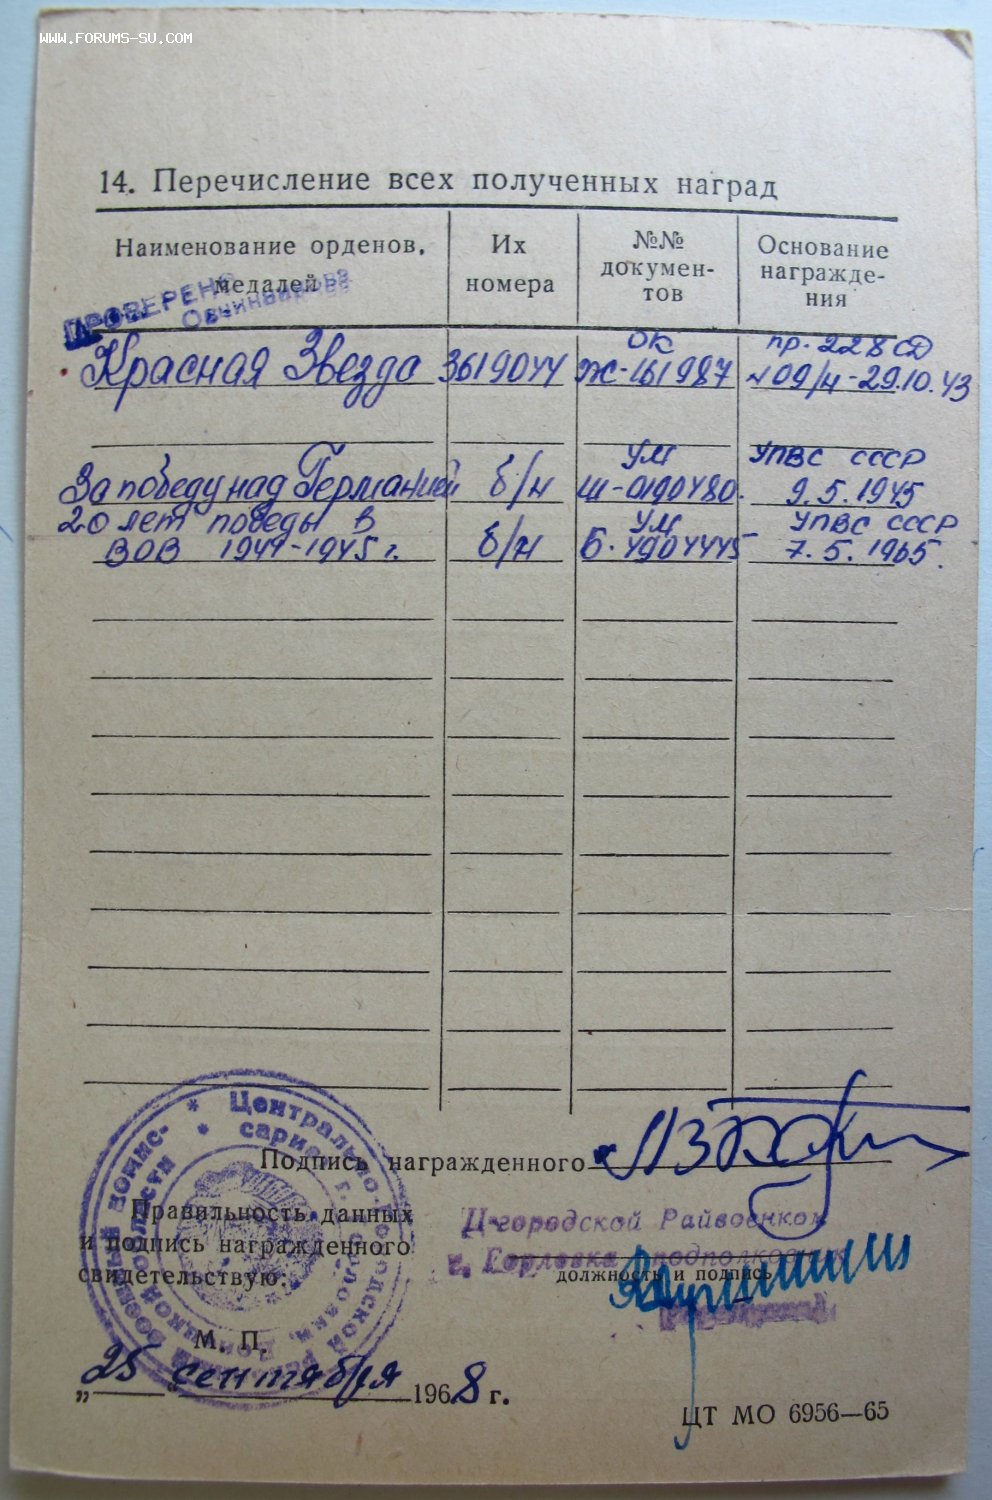 www.forums-su.com
14. Перечисление всех полученных наград
Наименование орденов, медалей
Их номера
№№ докумен-
тов
Основание
награжде-
ния
ПРОВЕРЕНО
Красная Звезда 3619044 ОК Ж-161987 пр. 228 СД №09/н-29.10.43
За победу над Германией б/н УМ Ш-0190480. УПВС СССР 9.5.1945
20 лет победы в ВОВ 1941-1945 г. б/н УМ Б. 4904445 УПВС СССР 7.5.1965.
Подпись награжденного
Правильность данных
и подпись награжденного
свидетельствую:
Ц-городской Райвоенком
г. Горловка подполковник
должность и подпись
М. П.
„25 сентября 1968 г.
ЦТ МО 6956—65